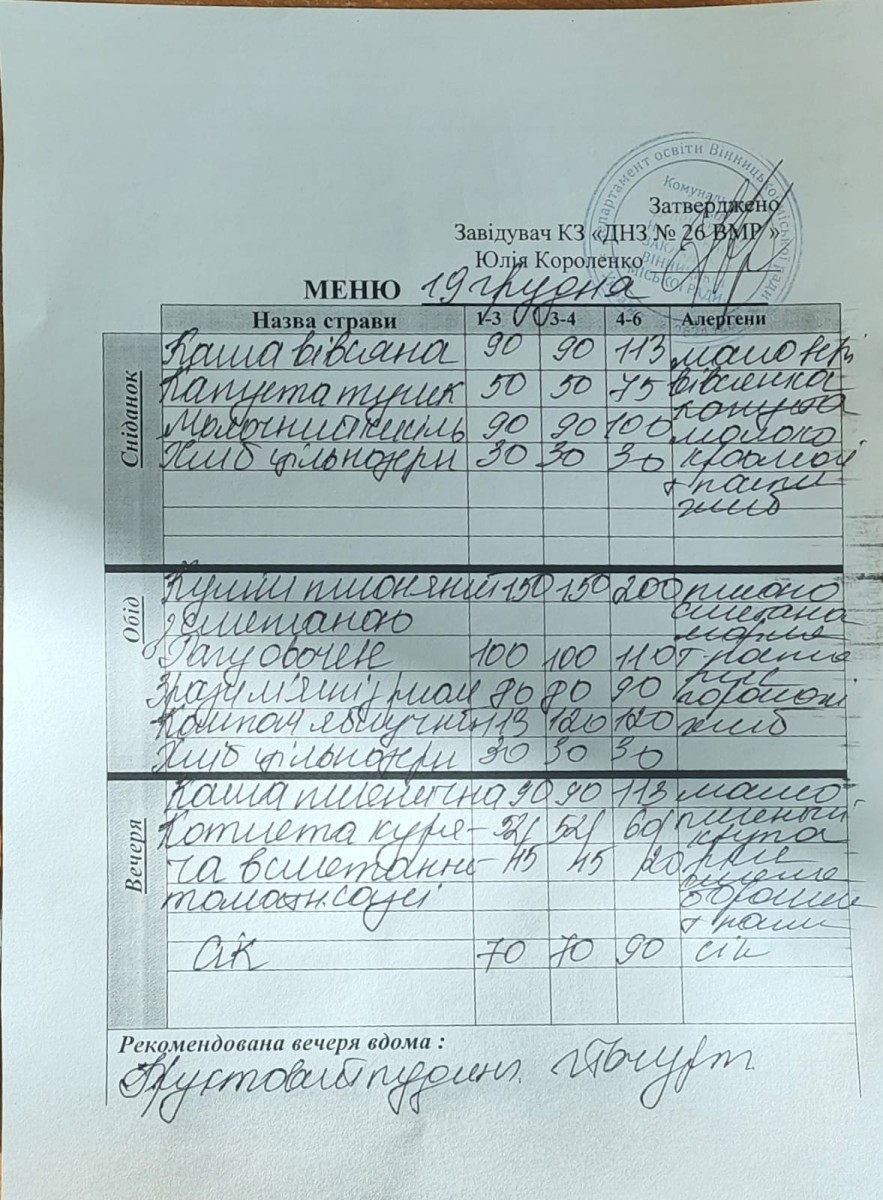 Департамент освіти Вінницької міської ради
Комунальний
ВІННИЦ
МІСЬКОЇ РАДИ
Затверджено
Завідувач КЗ «ДНЗ № 26 ВМР »
Юлія Короленко
МЕНЮ 19 грудна
Назва страви 1-3 3-4 4-6 Алергени
Сніданок
Каша вівсяна 90 90 113 масло
Капуста туш 50 50 75 вівсянка
капуста
Молочний кисіль 90 90 100 молоко
Хліб цільнозерн 30 30 30 крохмал
т паста
хліб
Обід
Куліш пшоняний 150 150 200 пшоно
з сметаною сметана
масло
Рагу овочеве 100 100 110 т паста
рис
Зрази м'ясні з рисом 80 80 90
Компот яблучний 113 120 120 хліб
Хліб цільнозерн 30 30 30
Вечеря
Каша пшенична 90 90 113 масло
Котлета куря- 52 52 60 пшенич
крупа
ча в сметанно- 45 45 20
томатн. соусі борошно
т паста
Сік 70 70 90 сік
Рекомендована вечеря вдома :
Фруктовий пудинг. Йогурт.